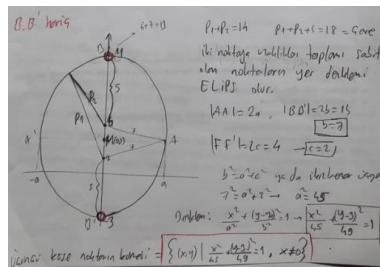 B.B' hariç
6+7=13
P₁+P₂=14   P₁+P₂+4=18=Çevre
iki noktaya uzaklıklar toplamı sabit
olan noktaların yer denklemi
ELİPS olur.
|AA'|=2a, |BB'|=2b=14
b=7
|FF'|=2c=4 → c=2
b²=a²+c²
7²=a²+2² → a²=45
Denklemi: x²/a² + (y-4)²/b² = 1 → x²/45 + (y-4)²/49 = 1
köşe noktanın = {(x,y) | x²/45 + (y-4)²/49 = 1, x≠0}
B
11
5
P₂
P₁
6
7
A'
A
-a
a
2
5
B'